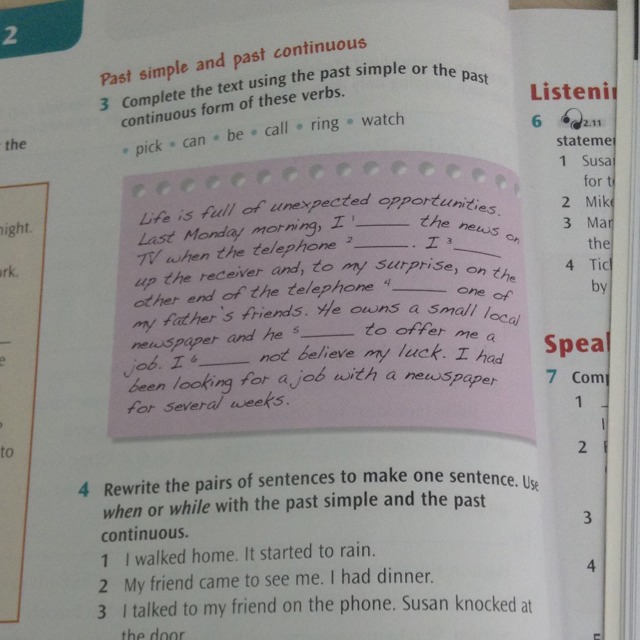 2
Past simple and past continuous
3 Complete the text using the past simple or the past
continuous form of these verbs.
• pick • can • be • call • ring • watch
Life is full of unexpected opportunities.
Last Monday morning, I ¹______ the news on
TV when the telephone ²______. I ³______
up the receiver and, to my surprise, on the
other end of the telephone ⁴______ one of
my father's friends. He owns a small local
newspaper and he ⁵______ to offer me a
job. I ⁶______ not believe my luck. I had
been looking for a job with a newspaper
for several weeks.
4 Rewrite the pairs of sentences to make one sentence. Use
when or while with the past simple and the past
continuous.
1 I walked home. It started to rain.
2 My friend came to see me. I had dinner.
3 I talked to my friend on the phone. Susan knocked at
the door
the
night.
to
6 2.11
1
for
2
3
the
4
by
7
1
2
3
4